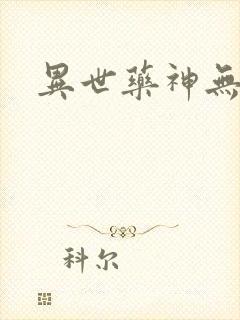 異世藥神無
科尔